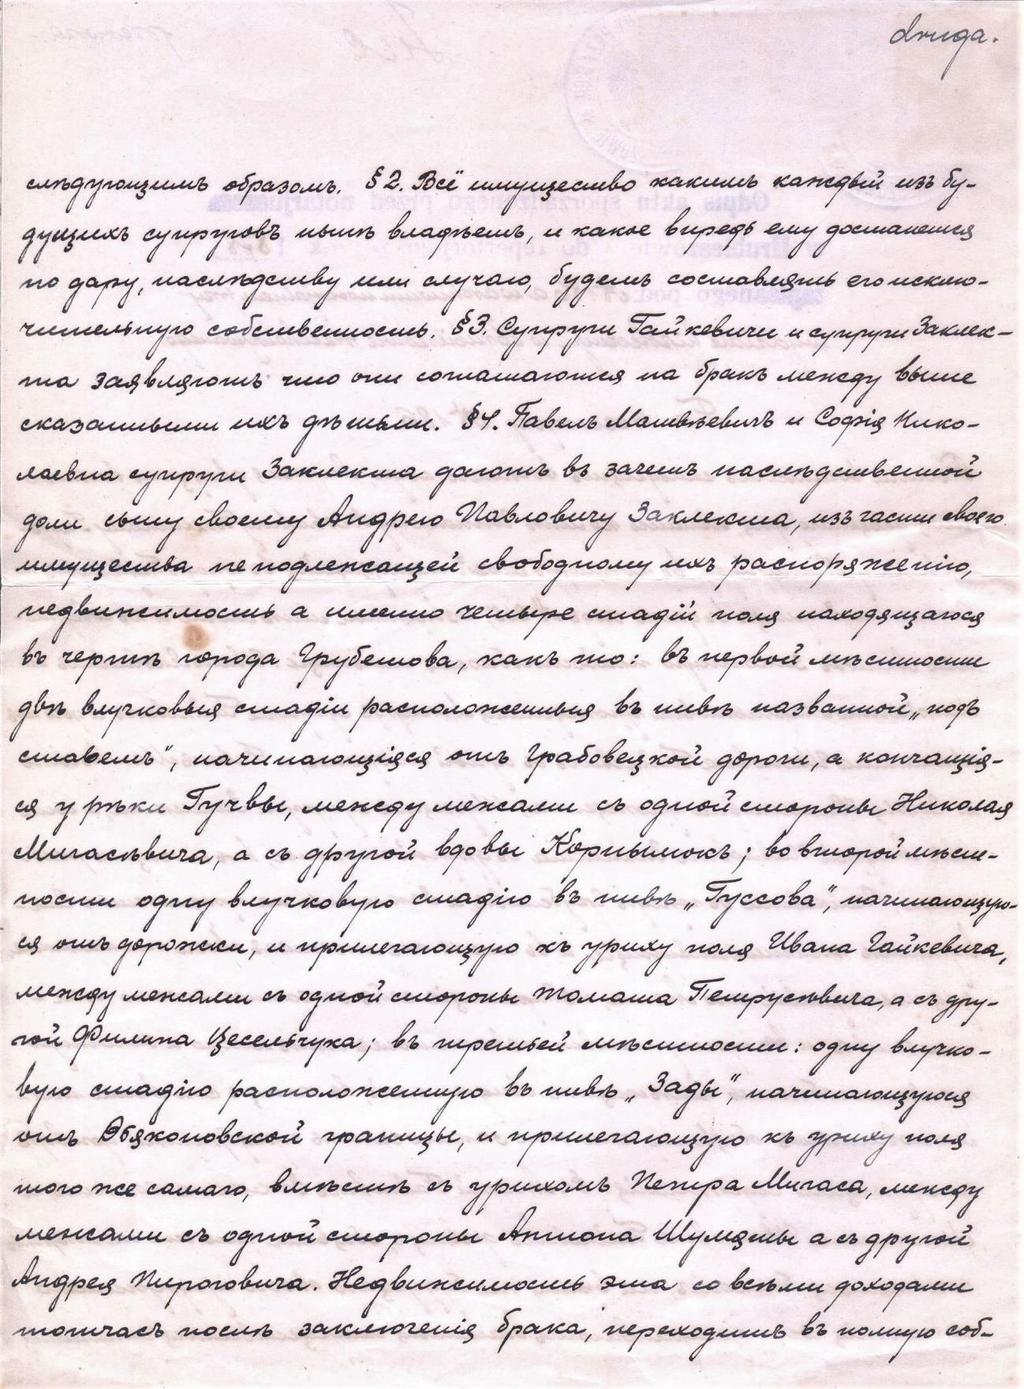 druga.
слѣдующимъ образомъ. §2. Всё имущество какимъ каждый изъ бу-
дущихъ супруговъ нынѣ владѣетъ, и какое впредь ему достанется
по дару, наслѣдству или случаю, будетъ составлять его исклю-
чительную собственность. §3. Супруги Гайкевичи и супруги Заклек-
та заявляютъ что они соглашаются на бракъ между выше
сказанными ихъ дѣтьми. §4. Павелъ Матвѣевичъ и Софія Нико-
лаевна супруги Заклекта даютъ въ зачетъ наслѣдственной
доли сыну своему Андрею Павловичу Заклекта, изъ части своего
имущества неподлежащей свободному ихъ распоряженію,
недвижимость а именно четыре стадіи поля находящагося
въ чертѣ города Грубешова, какъ то: въ первой мѣстности
двѣ влучковыя стадіи расположенныя въ нивѣ названной „подъ
ставемъ“, начинающіяся отъ Грабовецкой дороги, а кончащія-
ся у рѣки Гучвы, между межами съ одной стороны Николая
Мигасѣвича, а съ другой вдовы Корнымокъ; во второй мѣст-
ности одну влучковую стадію въ нивѣ „Гуссова“, начинающую-
ся отъ дорожки, и прилегающую къ уриху поля Ивана Гайкевича,
между межами съ одной стороны Томаша Петрусѣвича, а съ дру-
гой Филипа Цесельчука; въ третьей мѣстности: одну влучко-
вую стадію расположенную въ нивѣ „Зады“, начинающуюся
отъ границы, и прилегающую къ уриху поля
того же самаго, вмѣстѣ съ урихомъ Петра Мигаса, между
межами съ одной стороны Антона Шумяны а съ другой
Андрея Пироговича. Недвижимость эта со всѣми доходами
тотчасъ послѣ заключенія брака, переходитъ въ полную соб-